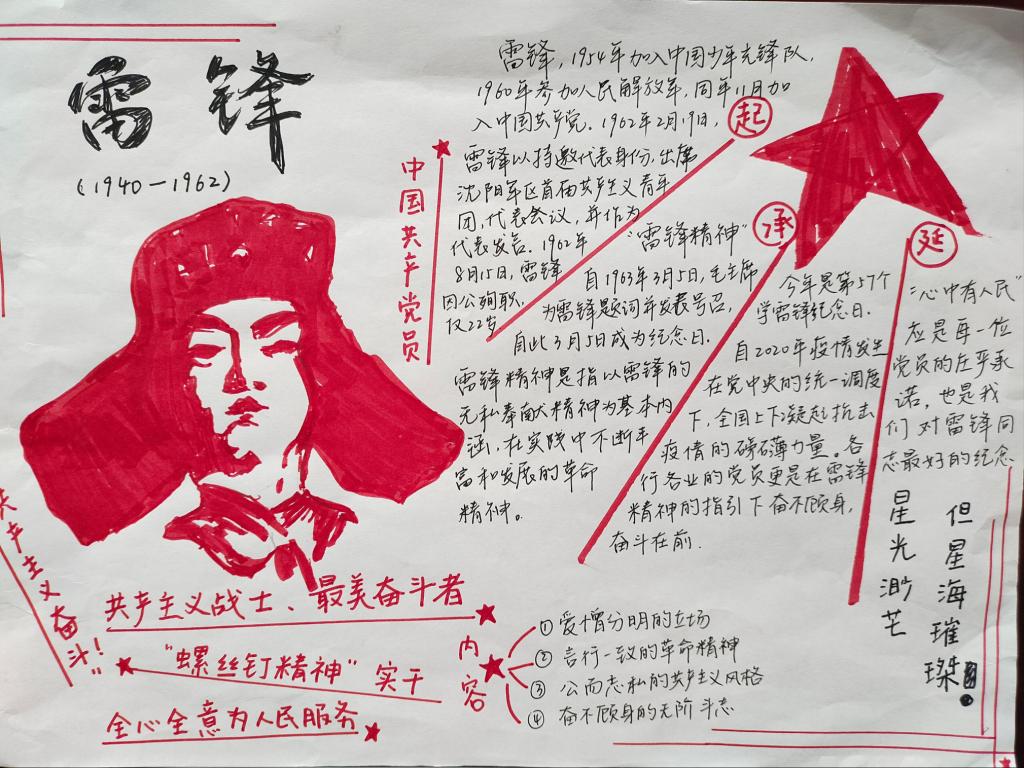 雷锋
(1940—1962)
中国共产党员
雷锋，1954年加入中国少年先锋队，
1960年参加人民解放军，同年11月加
入中国共产党。1962年2月19日，
雷锋以特邀代表身份，出席
沈阳军区首届共产主义青年
团，代表会议，并作为
代表发言。1962年
8月15日，雷锋
因公殉职，
仅22岁
起
"雷锋精神"
自1963年3月5日，毛主席
为雷锋题词并发表号召，
自此3月5日成为纪念日。
雷锋精神是指以雷锋的
无私奉献精神为基本内
涵，在实践中不断丰
富和发展的革命
精神。
承
今年是第57个
学雷锋纪念日.
自2020年疫情发生
在党中央的统一调度
下，全国上下凝起抗击
疫情的磅礴力量。各
行各业的党员更是在雷锋
精神的指引下奋不顾身，
奋斗在前.
延
"心中有人民"
应是每一位
党员的左乎承
诺，也是我
们对雷锋同
志最好的纪念
星光渺芒
但星海璀璨!
共产主义奋斗!"
共产主义战士、最美奋斗者
"螺丝钉精神"实干
全心全意为人民服务
内容
① 爱憎分明的立场
② 言行一致的革命精神
③ 公而忘私的共产主义风格
④ 奋不顾身的无阶斗志